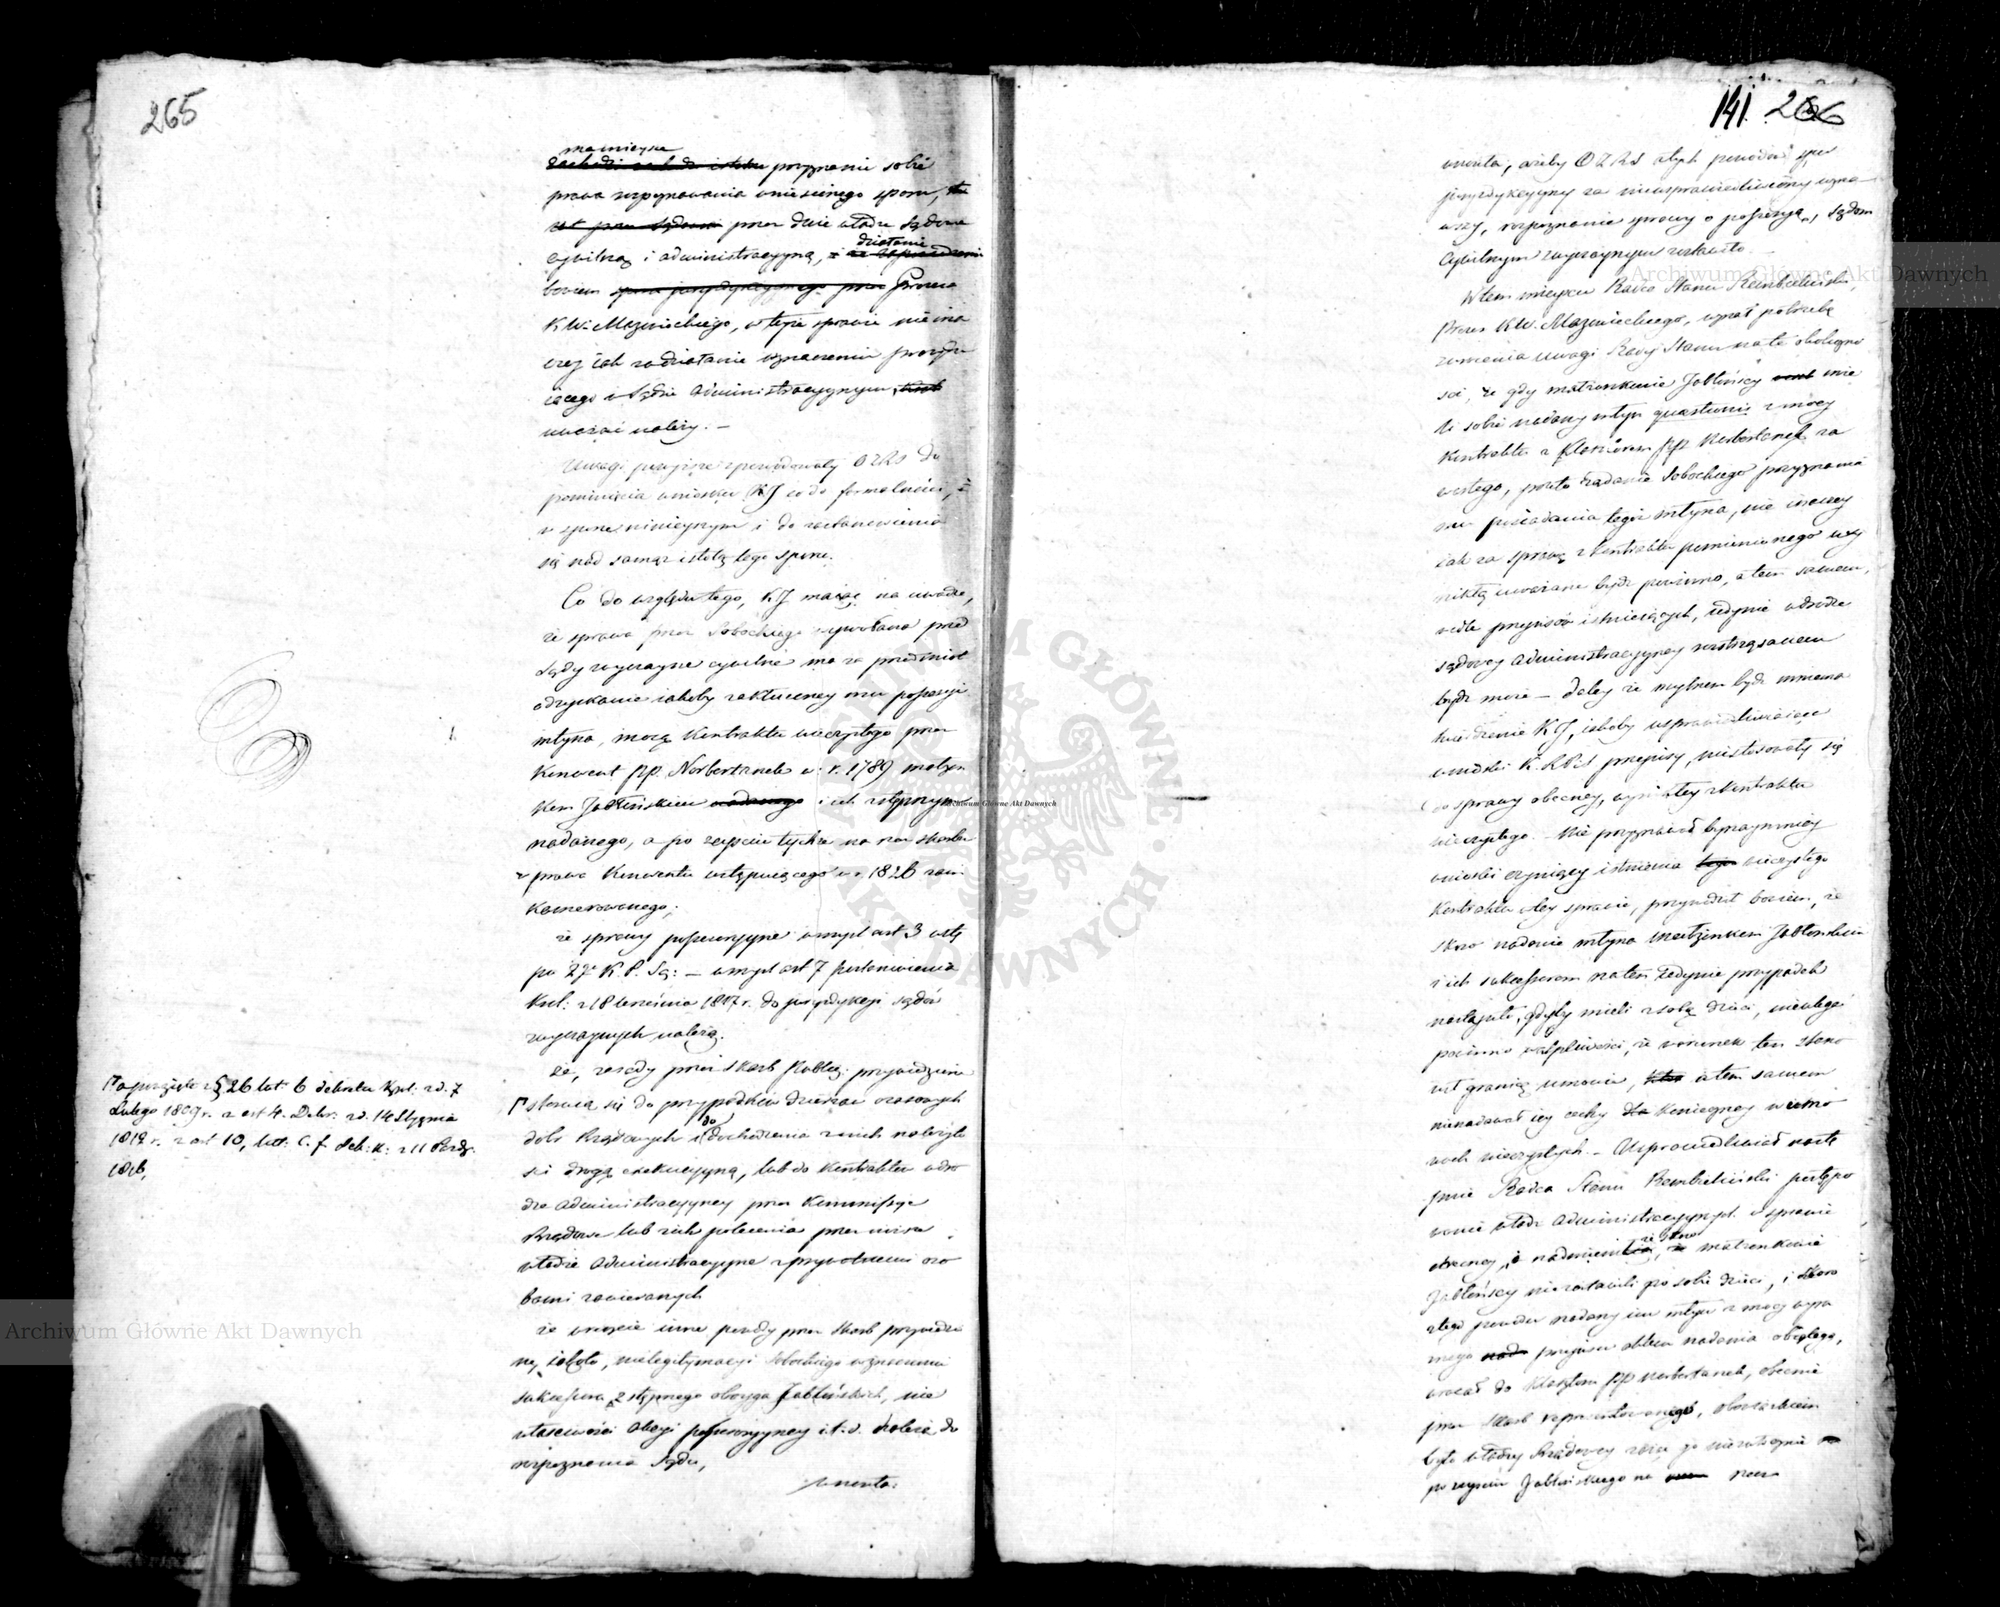 265
ma miejsce
przyznanie sobie
prawa rozpoznawania wniesionego sporu,
przez dwie władze Sądowe
działanie
cywilną i administracyjną,
bowiem Prezesa
K. W. Mazowieckiego, w tejże sprawie nie ina
czej jak za działanie
iącego w Sądzie Administracyjnym
uważać należy. —
Uwagi powyższe spowodowały OZRS do
pominięcia wniosku KJ co do formalności,
w sporze niniejszym i do zastanowienia
się nad samą istotą tego sporu.
Co do względu tego, KJ mając na uwadze,
że sprawa przez Sobockiego wywołana przed
Sądy zwyczayne cywilne ma za przedmiot
odzyskanie iakoby zakłóconey mu possessyi
młyna, mocą Kontraktu wieczystego przez
Konwent pp. Norbertanek w r. 1789 małżon
kom Jabłońskim nadanego i ich
nadanego, a po zeyściu tychże na rzecz skarbu
w prawa Konwentu wstępuiącego w r. 1826 zain
kamerowanego;
że sprawy possessoryjne w myśl art 3 ustę
pu 2go K. P. Są: — w myśl art 7 postanowienia
Król: z 18 Września 1817 r. do juryzdykcyi sądów
zwyczaynych należą.
że, zasady przez Skarb Publicz: przywiedzione
Γ stosuią się do przypadków dzierżaw czasowych
dóbr Rządowych i do dochodzenia z nich należyto
ści drogą exekucyjną, lub do Kontraktów w dro
dze administracyjney przez Kommissye
Rządowe lub z ich polecenia przez niższe
władze administracyjne z prywatnemi oso
bami zawieranych
że wreszcie inne powody przez Skarb przywiedzio
ne, iakoto, nielegitymacyi Sobockiego
sukcessora, zstępnego oboyga Jabłońskich, nie
właściwości akcyi possessoryjney i t. d. należą do
rozpoznania Sądu,
wnosiła:
Γ a przepisy z § 26 lat. b dekretu Król. z d. 7
Lutego 1809 r. z art 4. Dekr: z d. 14 Stycznia
1812 r. z art 10, lit: C. f dek: k: z 11 Paźdz.
141 266
wniosła, ażeby OZRS z tych powodów spór
juryzdykcyjny za nieusprawiedliwiony uzna
wszy, rozpoznanie sprawy o possessyą, sądom
Cywilnym zwyczaynym zostawiło. —
W tem miejscu Radca Stanu Rembieliński,
Prezes K. W. Mazowieckiego, uznał potrzebę
zwrócenia uwagi Rady Stanu na tę okoliczno
ść, że gdy małżonkowie Jabłońscy mie
li sobie nadany młyn quaestionis z mocy
Kontraktu z Klasztorem pp Norbertanek za
wartego, przeto żądanie Sobockiego przyznania
mu posiadania tegoż młyna, nie inaczey
iak za sprawę z Kontraktu pomienionego wy
nikłą uważane bydź powinno, a tem samem,
wedle przepisów istnieiących, iedynie w drodze
sądowey Administracyjney roztrząsanem
bydź może — daley że mylnem bydź mniema
twierdzenie KJ, iakoby usprawiedliwiaiące
wnioski K. R. P. i S przepisy, niestosowały się
do sprawy obecney, wynikłey z Kontraktu
wieczystego. — Nie przyznawał bynaymniey
wnioski czyniący istnienia wieczystego
Kontraktu w tey sprawie, przywodził bowiem, że
skoro nadanie młyna małżonkom Jabłońskim
i ich sukcessorom na ten iedynie przypadek
nastąpiło, gdyby mieli z sobą dzieci, nieulegać
powinno wątpliwości, że warunek ten skoro
był granicą umowie, a tem samem
nienadawał iey cechy koniecznej w umo
wach wieczystych. — Usprawiedliwiał nastę
pnie Radca Stanu Rembieliński postępo
wanie władz Administracyjnych w sprawie
obecney, i nadmienił, że skoro małżonkowie
Jabłońscy niezostawili po sobie dzieci, i skoro
z tego powodu nadany im młyn z mocy wyra
źnego przepisu aktem nadania obiętego,
wracał do Klasztoru pp Norbertanek, obecnie
przez Skarb reprezentowanego, obowiązkiem
było władzy Rządowey
po zeyściu Jabłońskiego na rzecz
Archiwum Główne Akt Dawnych
Archiwum Główne Akt Dawnych
Archiwum Główne Akt Dawnych
ARCHIWUM GŁÓWNE AKT DAWNYCH